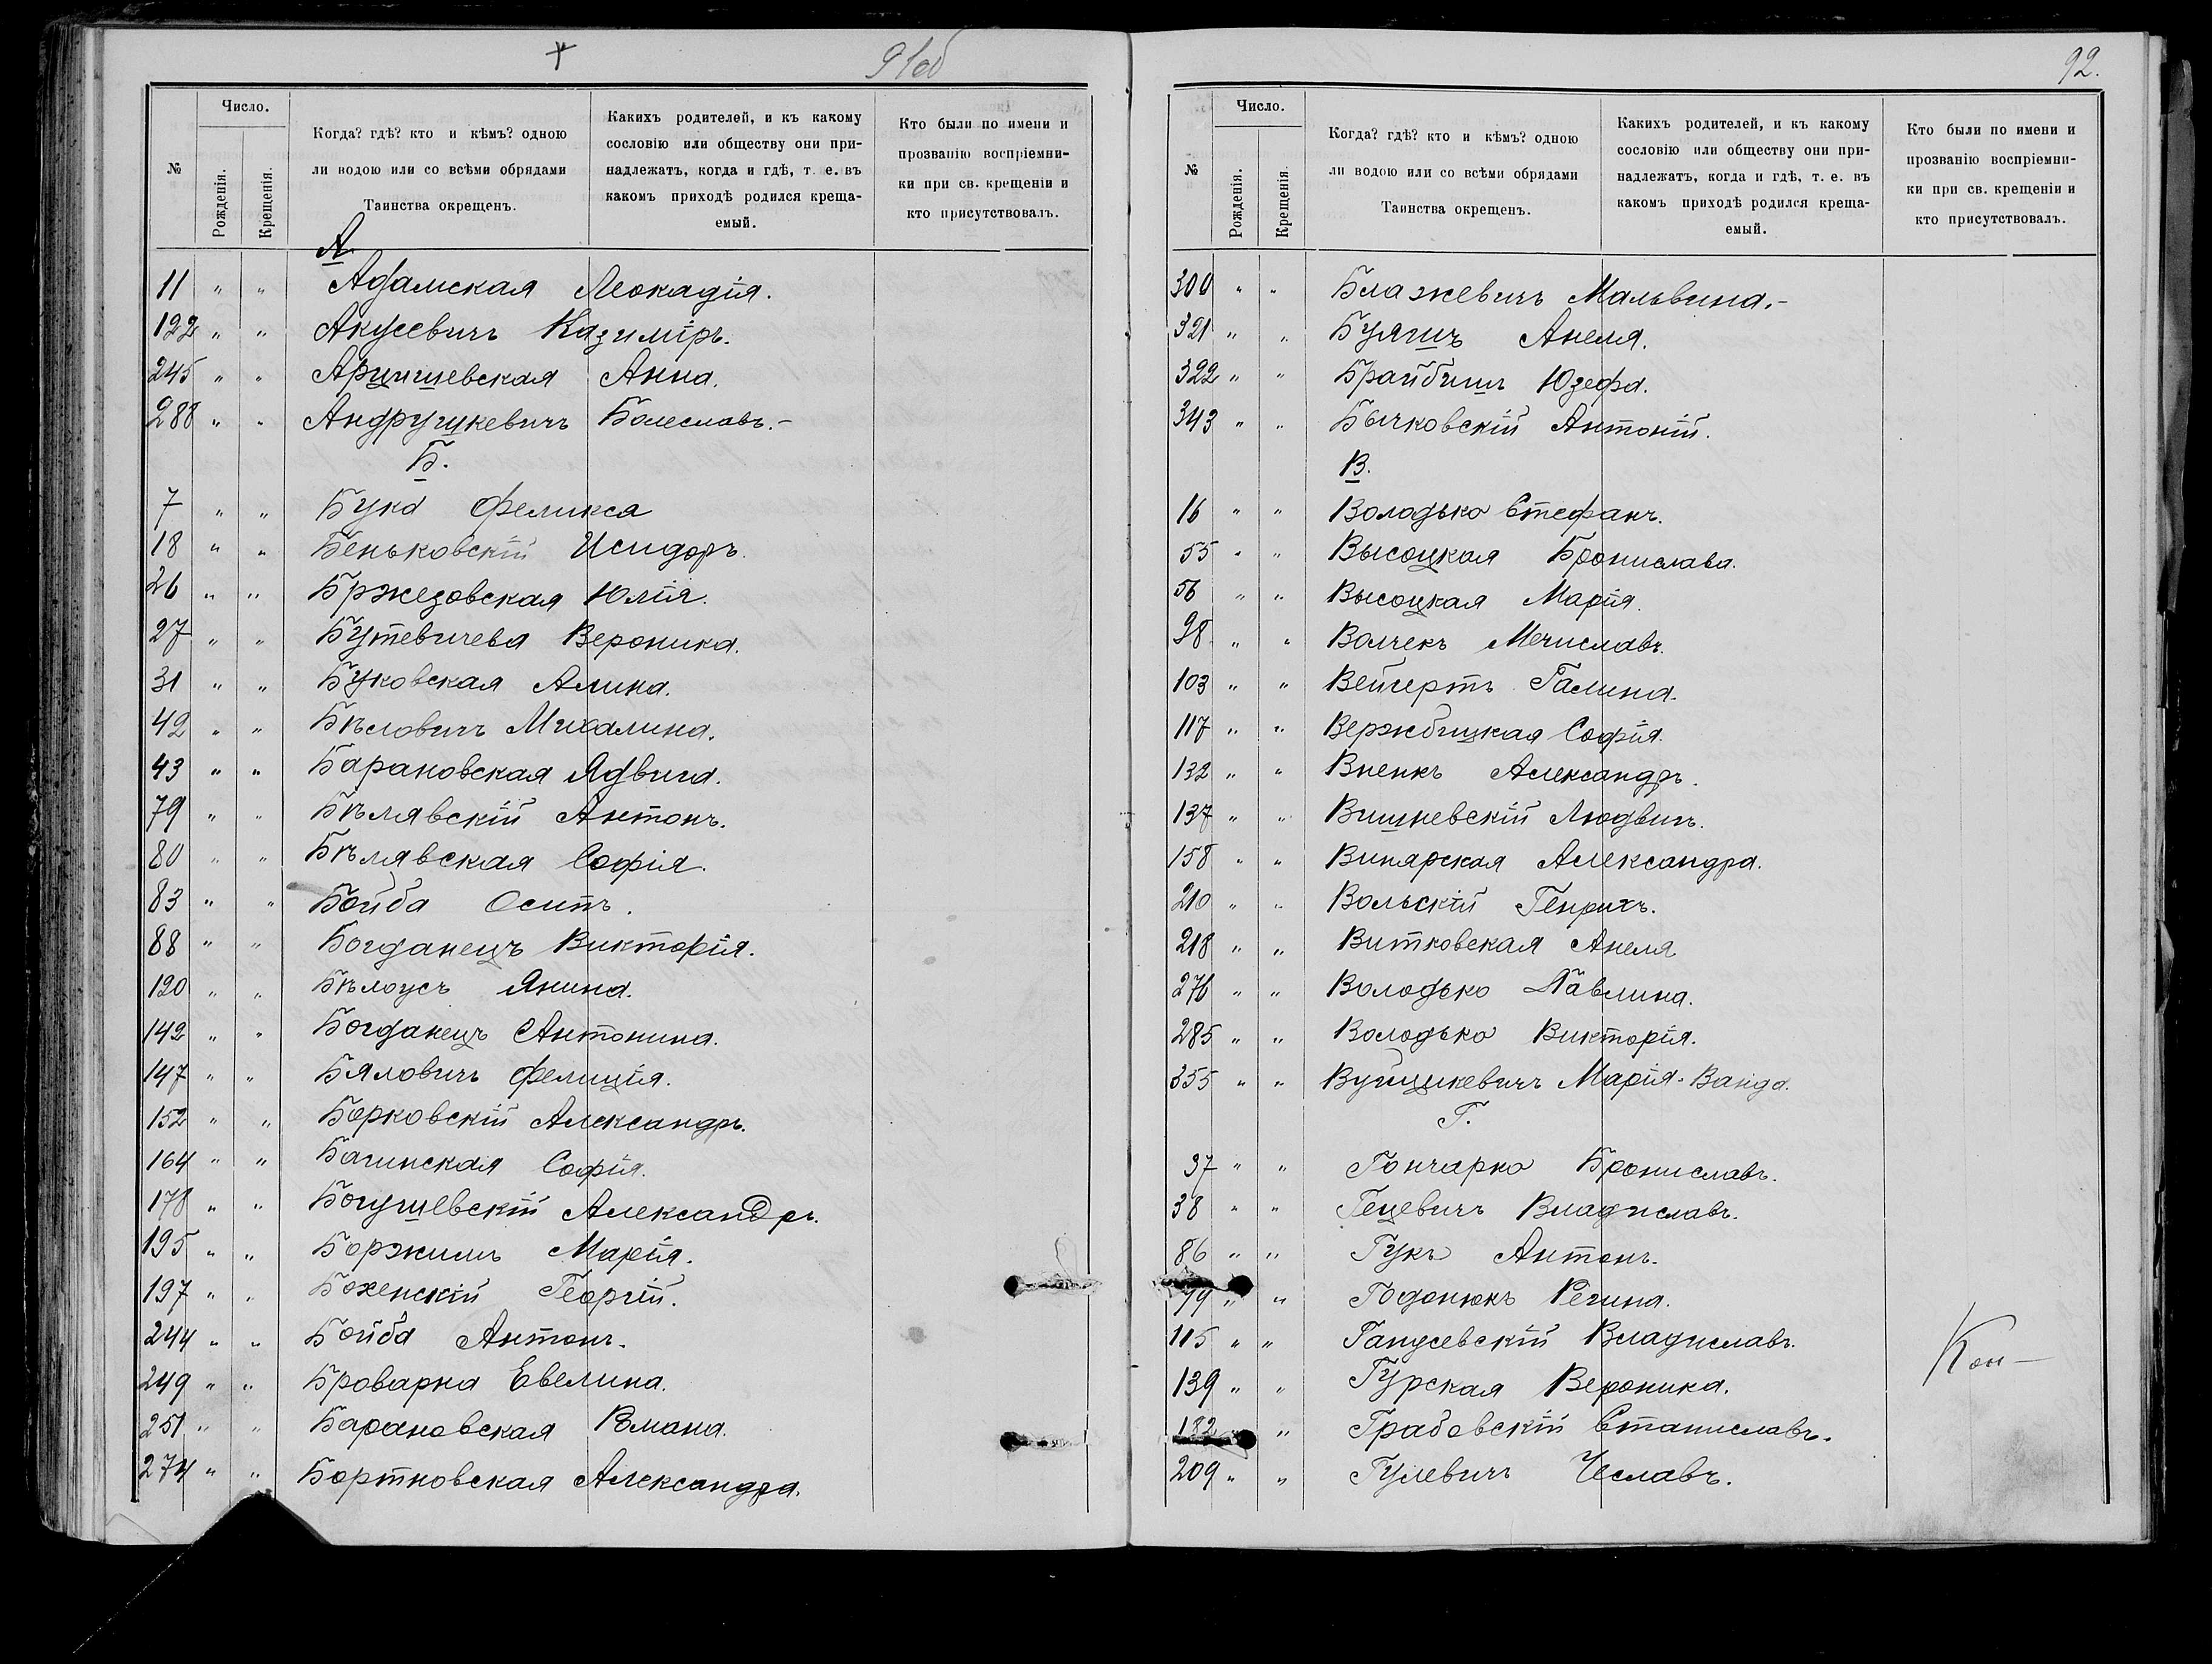 91об
№
Число.
Рожденія.
Крещенія.
Когда? гдѣ? кто и кѣмъ? одною
ли водою или со всѣми обрядами
Таинства окрещенъ.
Какихъ родителей, и къ какому
сословію или обществу они при-
надлежатъ, когда и гдѣ, т. е. въ
какомъ приходѣ родился креща-
емый.
Кто были по имени и
прозванію воспріемни-
ки при св. крещеніи и
кто присутствовалъ.
А
11 " " Адамская Леокадія.
122 " " Акусевичъ Казиміръ.
245 " " Арцишевская Анна.
288 " " Андрушкевичъ Болеславъ.-
Б.
7 " " Бука Феликса
18 " " Беньковскій Исидоръ.
26 " " Бржезовская Юлія.
27 " " Бутевичева Вероника.
31 " " Буковская Алина.
42 " " Бѣловичъ Михалина.
43 " " Барановская Ядвига.
79 " " Бѣлявскій Антонъ.
80 " " Бѣлявская Софія.
83 " " Бойба Осипъ.
88 " " Богданецъ Викторія.
120 " " Бѣлоусъ Янина.
142 " " Богданецъ Антонина.
147 " " Бяловичъ Фелиція.
152 " " Борковскій Александръ.
164 " " Багинская Софія.
178 " " Богушевскій Александръ.
195 " " Боржимъ Марія.
197 " " Бохенскій Георгій.
244 " " Бойба Антонъ.
249 " " Броварна Евелина.
251 " " Барановская Романа.
274 " " Бортновская Александра.
92.
№
Число.
Рожденія.
Крещенія.
Когда? гдѣ? кто и кѣмъ? одною
ли водою или со всѣми обрядами
Таинства окрещенъ.
Какихъ родителей, и къ какому
сословію или обществу они при-
надлежатъ, когда и гдѣ, т. е. въ
какомъ приходѣ родился креща-
емый.
Кто были по имени и
прозванію воспріемни-
ки при св. крещеніи и
кто присутствовалъ.
300 " " Блажевичъ Мальвина.-
321 " " Анеля.
322 " " Юзефа.
343 " " Бычковскій Антоній.
В.
16 " " Володько Стефанъ.
55 " " Высоцкая Бронислава.
56 " " Высоцкая Марія.
98 " " Волчекъ Мечиславъ.
103 " " Вейгертъ Галина.
117 " " Вержбицкая Софія.
132 " " Вненкъ Александръ.
137 " " Вишневскій Людвигъ.
158 " " Винярская Александра.
210 " " Вольскій Генрихъ.
218 " " Витковская Анеля
276 " " Володько Павлина.
285 " " Володько Викторія.
355 " " Вуйцикевичъ Марія-Ванда.
Г.
37 " " Гончарко Брониславъ.
38 " " Гецевичъ Владиславъ.
86 " " Гукъ Антонъ.
99 " " Годонюкъ Регина.
115 " " Гапусевскій Владиславъ.
139 " " Гурская Вероника.
182 " Грабовскій Станиславъ.
209 " " Гулевичъ Чеславъ.
Кон—